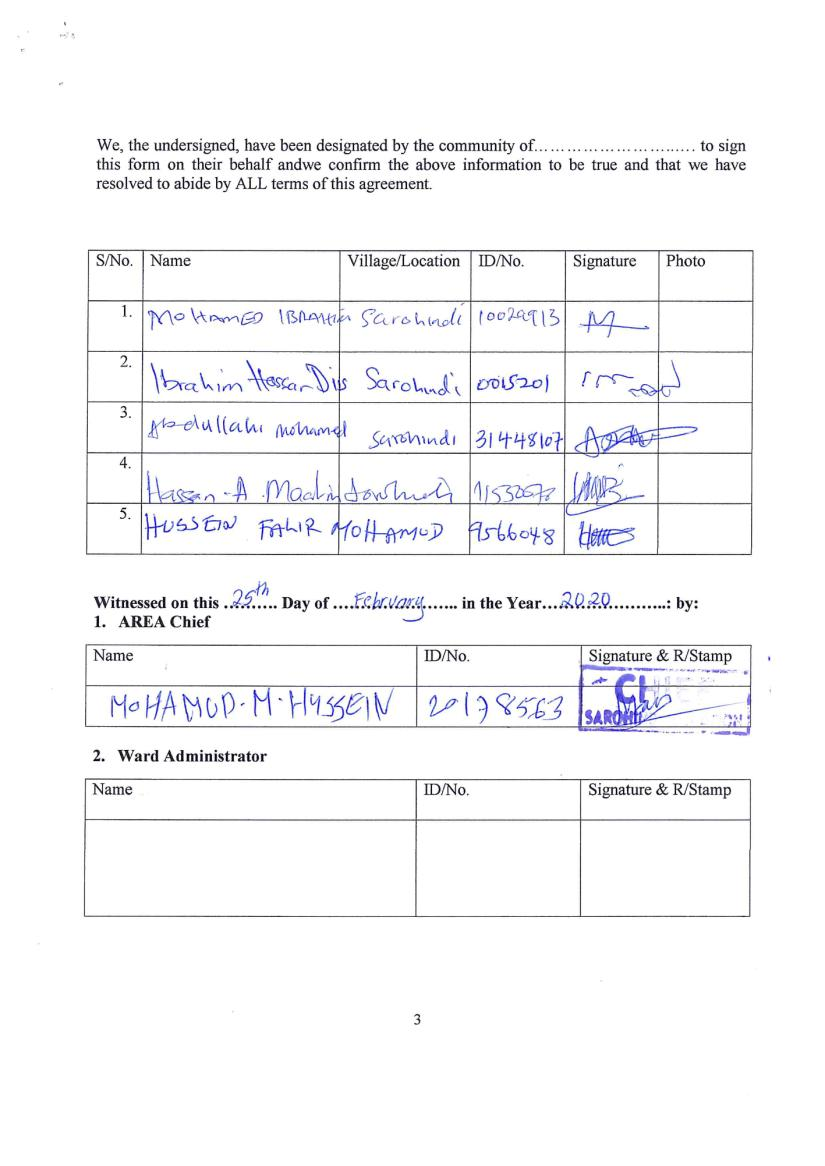 We, the undersigned, have been designated by the community of.............................. to sign
this form on their behalf andwe confirm the above information to be true and that we have
resolved to abide by ALL terms of this agreement.
S/No. Name Village/Location ID/No. Signature Photo
1. MOHAMED IBRAHIM Sarohindi 10029913
2. Ibrahim Hassan Diis Sarohindi 0015201
3. Abdullahi mohamed sarohindi 31448107
4. Hassan-A.
5. HUSSEIN FALIR MOHAMUD 9566048
Witnessed on this ..25th..... Day of ....February....... in the Year...2020...........: by:
1. AREA Chief
Name ID/No. Signature & R/Stamp
MOHAMUD.M.HUSSEIN 20178563
2. Ward Administrator
Name ID/No. Signature & R/Stamp
3